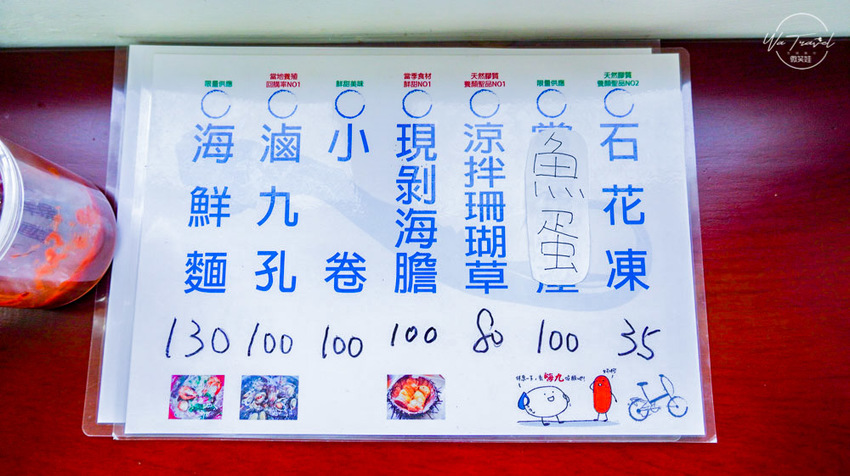 Wa Travel
微笑蛙
石花凍
天然膠質
養顏聖品NO2
35
限量供應
魚蛋
100
天然膠質
養顏聖品NO1
涼拌珊瑚草
80
當季食材
鮮甜NO1
現剝海膽
100
鮮甜美味
小卷
100
當地養殖
回購率NO1
滷九孔
100
限量供應
海鮮麵
130